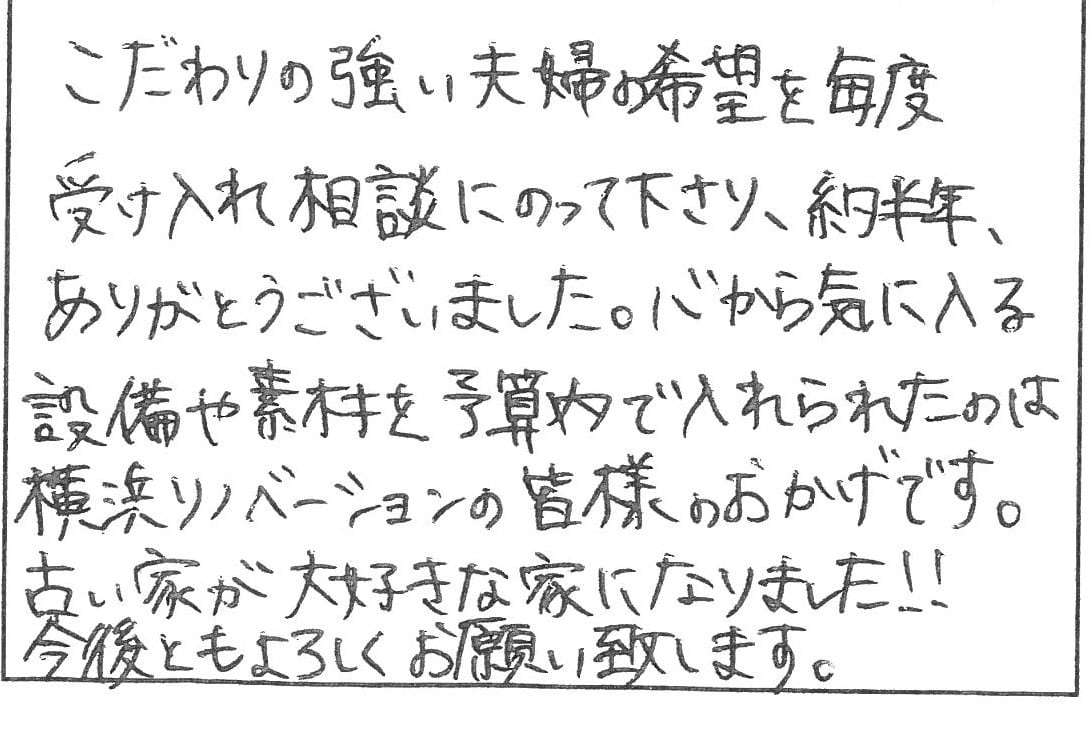 こだわりの強い夫婦の希望を毎度
受け入れ相談にのって下さり、約半年、
ありがとうございました。心から気に入る
設備や素材を予算内で入れられたのは
横浜リノベーションの皆様のおかげです。
古い家が大好きな家になりました!!
今後ともよろしくお願い致します。